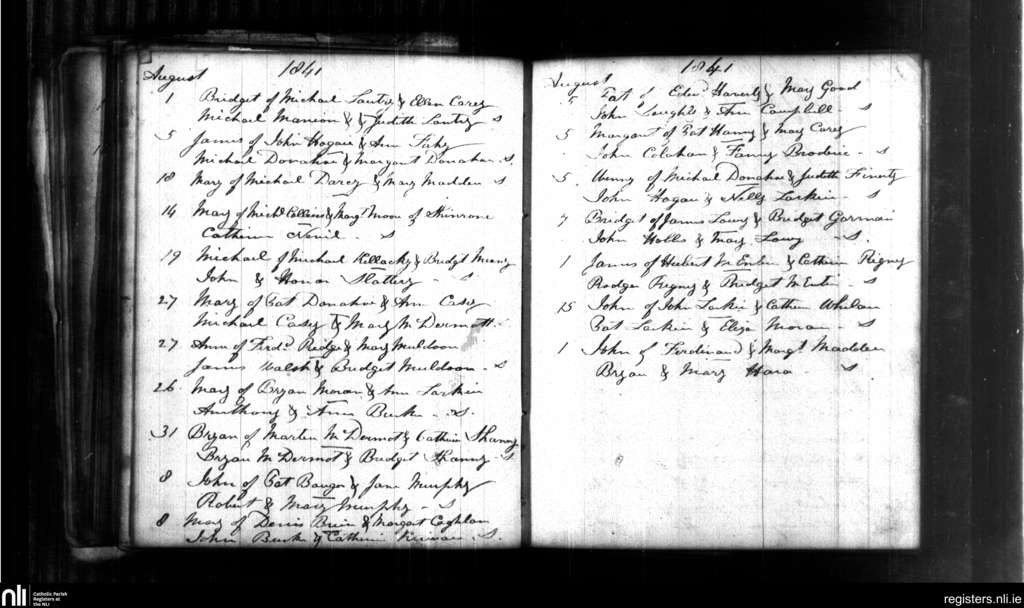 August 1841
1 Bridget of Michael & Ellen Carey
Michael Mannion & Judith S
5 James of John Hogan & Ann Fahy
Michael Donahoe & Margaret Donahoe S.
18 Mary of Michael Darcy & Mary Madden S
14 Mary of Michl Collins & Margt Moore of Shinrone
Catherine S
19 Michael of Michael Killachy & Bridgt
John & Honor Slattery S
27 Mary of Pat Donahoe & Ann Casey
Michael Casey & Mary McDermott
27 Ann of Ferdd Ridge & Mary Muldoon
James Walsh & Bridget Muldoon - S
26 Mary of Bryan Moran & Ann Larkin
Anthony & Ann Burke - S.
31 Bryan of Martin McDermot & Catherine
Bryan McDermot & Bridget S
8 John of Pat & Jane Murphy
Robert & Mary Murphy - S
8 Mary of Denis & Margaret Coghlan
John Burke & Catherine S.
August 1841
5 Pat of Edwd & Mary Good
John & Ann Campbell - S
5 Margaret of Pat & Mary Carey
John Colohan & Fanny Broderic - S
5 of Michael Donahoe & Judith
John Hogan & Nelly Larkin - S
7 Bridget of James Lowry & Bridget Gorman
John & Mary Lowry - S.
1 James of Hubert & Catherine Rigney
Rodger Rigney & Bridget S
15 John of John Larkin & Catherine Whelan
Pat Larkin & Eliza Moran - S
1 John of Ferdinand & Margt Madden
Bryan & Mary Hara - S
nli Catholic Parish
Registers at
the NLI
registers.nli.ie